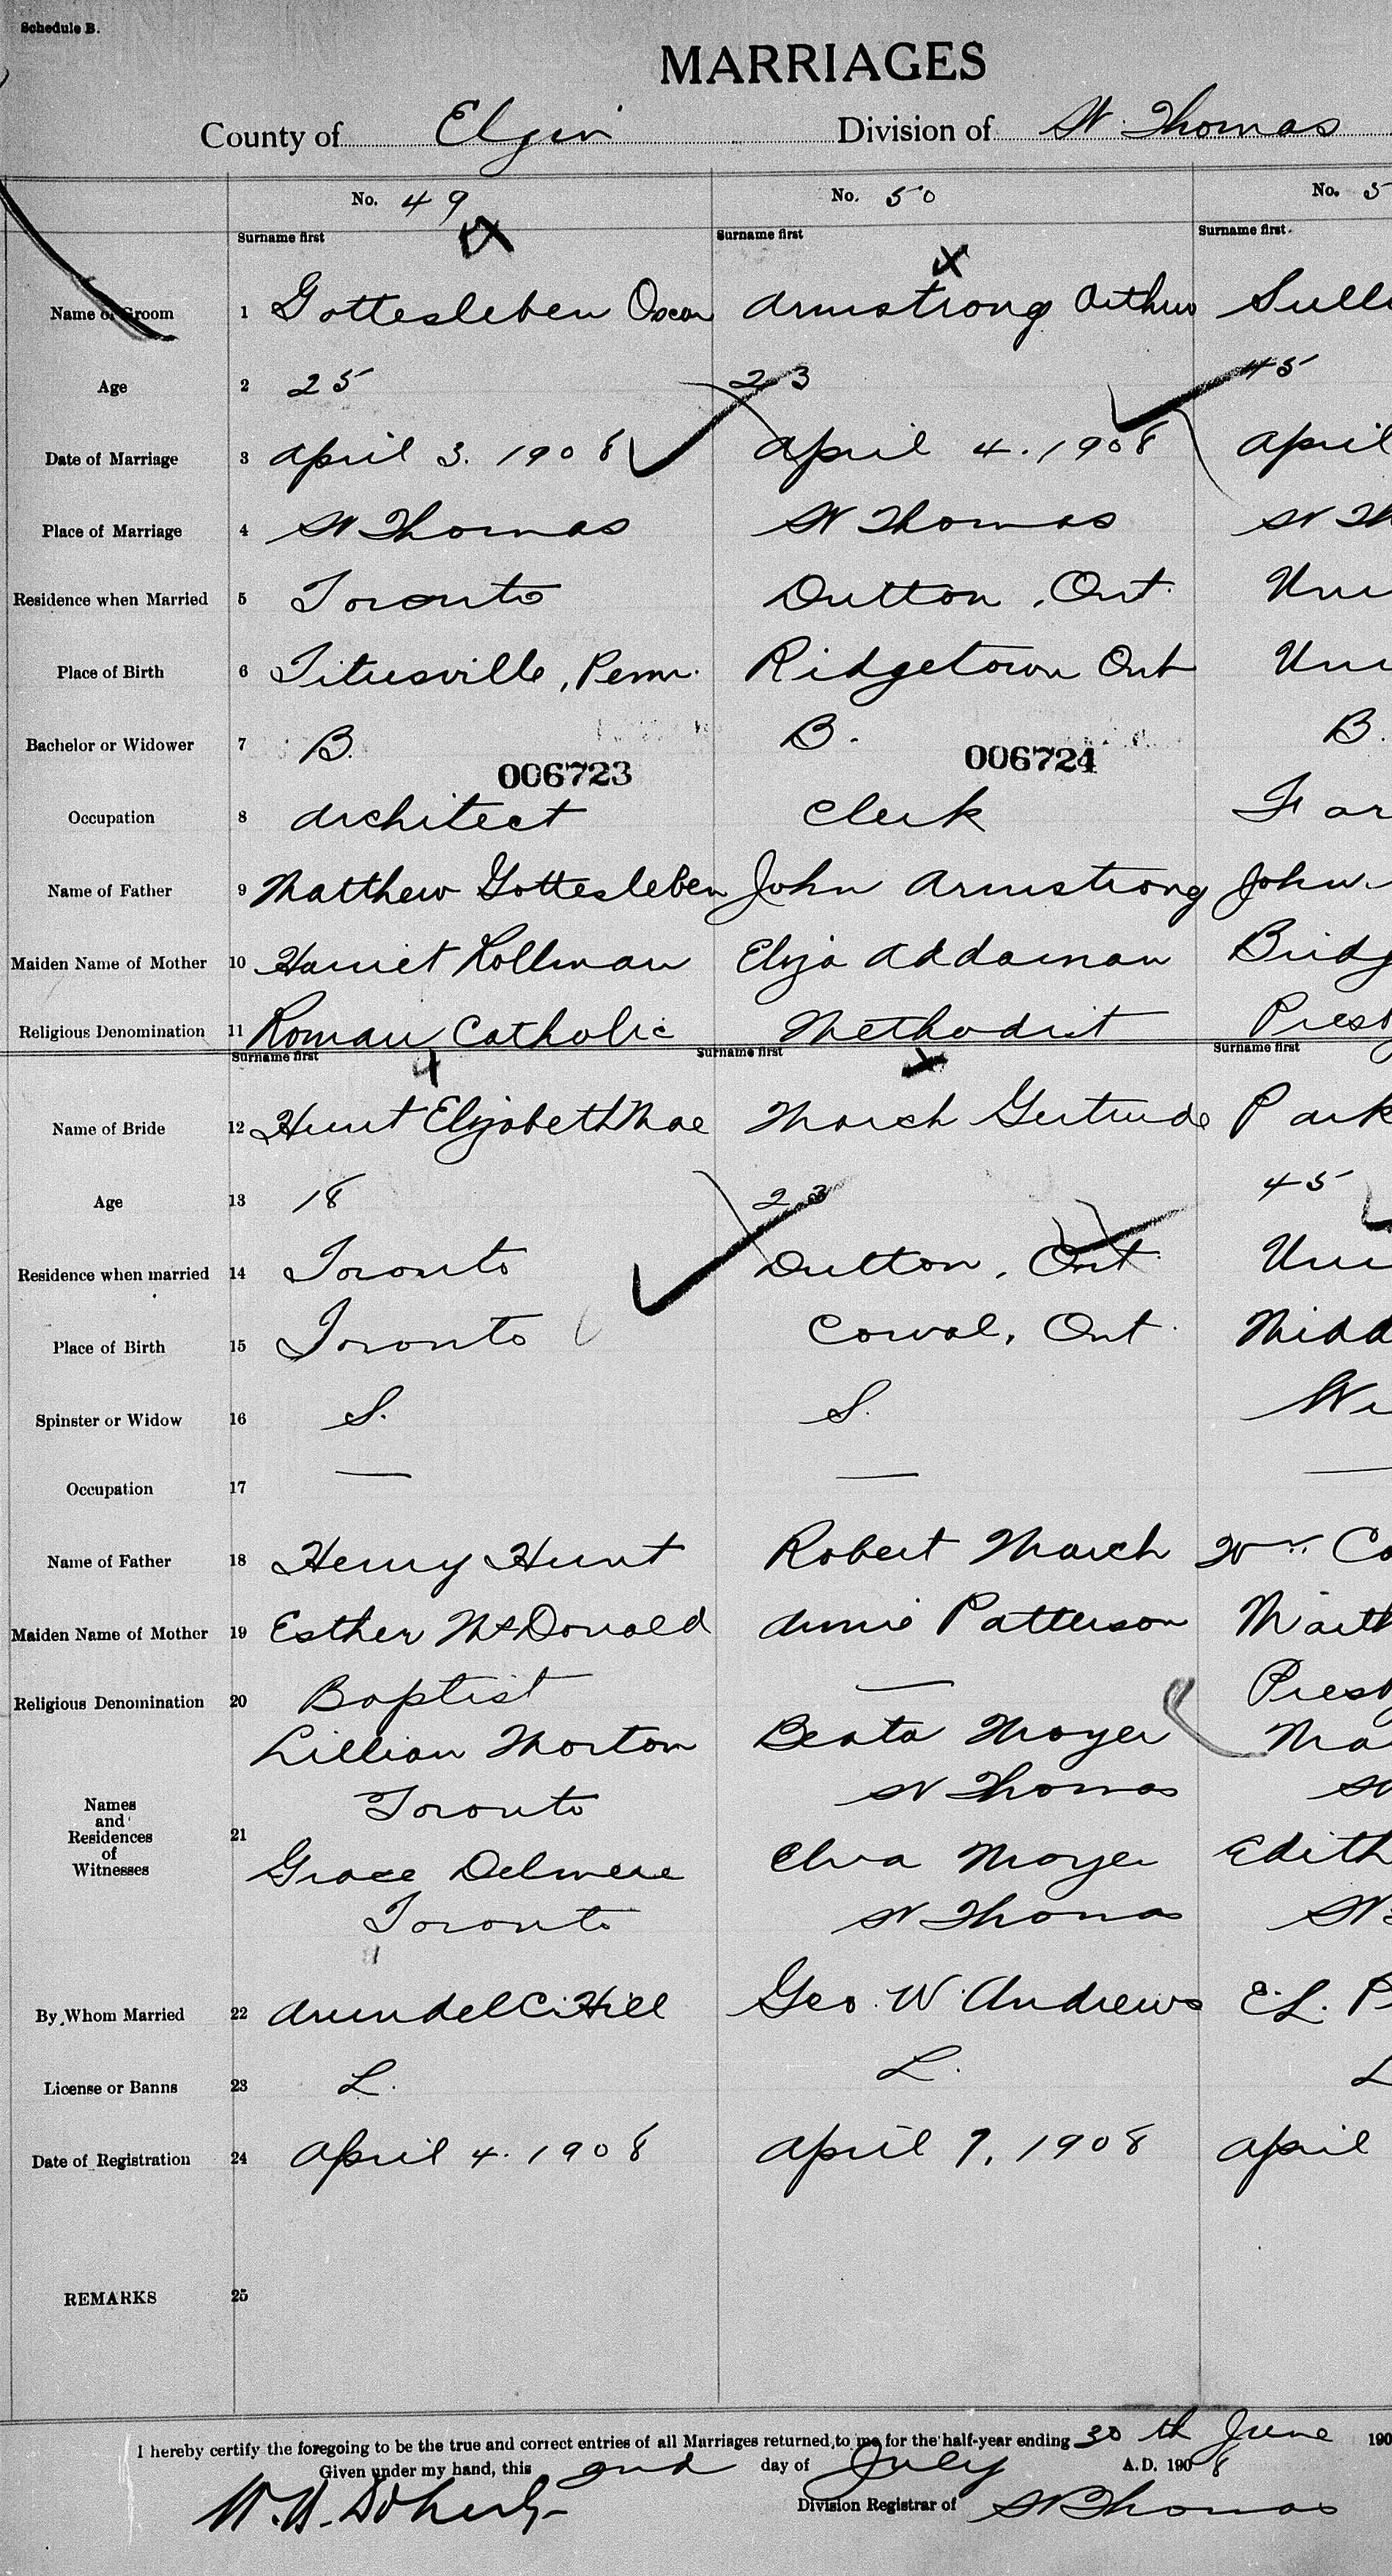 Schedule B.
MARRIAGES
County of Elgin Division of St. Thomas
No. 49 No. 50 No. 5
Surname first Surname first Surname first.
Name of Groom 1 Gottesleben Oscar Armstrong Arthur Sulli
Age 2 25 23 45
Date of Marriage 3 April 3. 1908 April 4. 1908 April
Place of Marriage 4 St Thomas St Thomas St Th
Residence when Married 5 Toronto Dutton, Ont. Uni
Place of Birth 6 Titusville, Penn. Ridgetown Ont Uni
Bachelor or Widower 7 B. B. B.
006723 006724
Occupation 8 Architect Clerk Far
Name of Father 9 Matthew Gottesleben John Armstrong John
Maiden Name of Mother 10 Harriet Kollman Eliza Addaman Bridg
Religious Denomination 11 Roman Catholic Methodist Presb
Surname first Surname first Surname first
Name of Bride 12 Hunt Elizabeth Mae March Gertrude Park
Age 13 18 23 45
Residence when married 14 Toronto Dutton, Ont. Uni
Place of Birth 15 Toronto Cowal, Ont. Midd
Spinster or Widow 16 S. S. Wi
Occupation 17 — — —
Name of Father 18 Henry Hunt Robert March Wm. Co
Maiden Name of Mother 19 Esther McDonald Annie Patterson Marth
Religious Denomination 20 Baptist — Presb
Lillian Morton Beata Moyer Ma
Toronto St Thomas St
Names and Residences of Witnesses 21
Grace Delmere Elva Moyer Edith
Toronto St Thomas St
By Whom Married 22 Arundel C. Hill Geo. W. Andrews E. L. P
License or Banns 23 L. L. L
Date of Registration 24 April 4. 1908 April 7, 1908 April
REMARKS 25
I hereby certify the foregoing to be the true and correct entries of all Marriages returned to me for the half-year ending 30th June 190
Given under my hand, this 2nd day of July A.D. 1908
W. H. Doherty Division Registrar of St Thomas